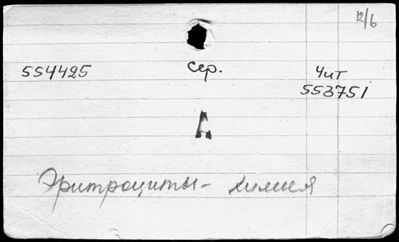 12/6
554425 сер. Чит
553751
А
Эритроциты - химия